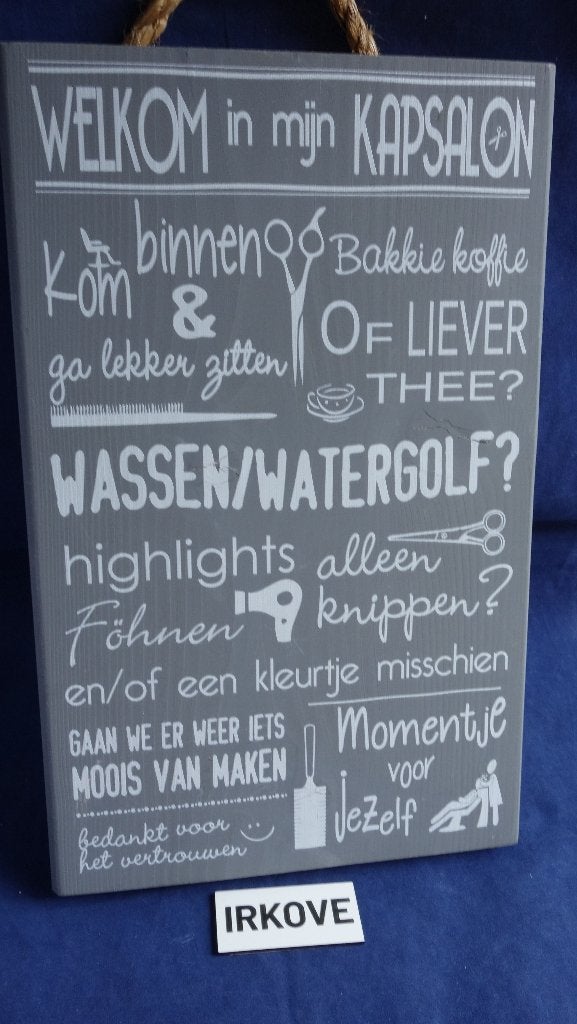 WELKOM in mijn KAPSALON
Kom binnen
&
ga lekker zitten
Bakkie koffie
OF LIEVER
THEE?
WASSEN/WATERGOLF?
highlights
alleen
knippen?
Föhnen
en/of een kleurtje misschien
GAAN WE ER WEER IETS
MOOIS VAN MAKEN
bedankt voor
het vertrouwen
Momentje
voor
jezelf
IRKOVE